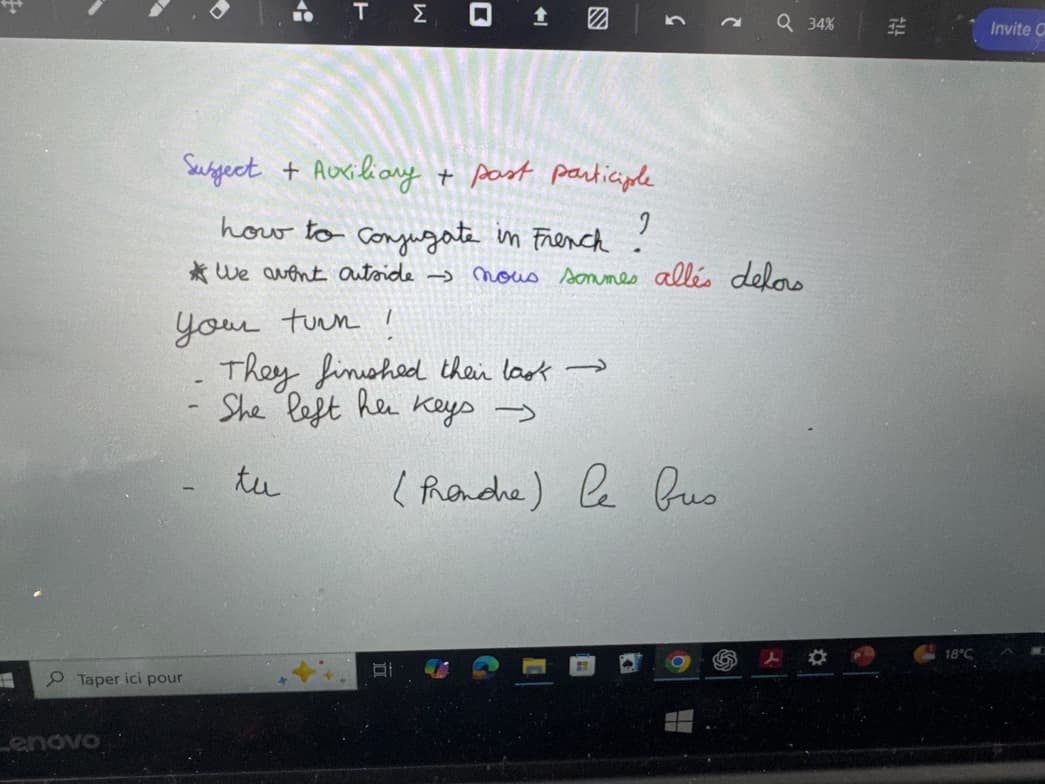 T Σ 34% Invite
Subject + Auxiliary + past participle
how to conjugate in French ?
* We went outside → nous sommes allés dehors
your turn !
- They finished their task →
- She left her keys →
- tu (Prendre) le bus
Taper ici pour 18°C
Lenovo